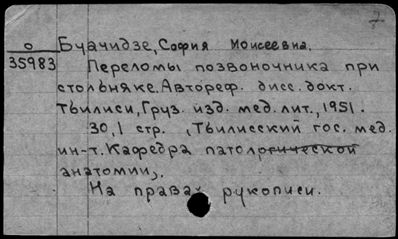 о Буачидзе, София Моисеевна.
35983 Переломы позвоночника при
столбняке. Автореф. дисс. докт.
Тбилиси, Груз. изд. мед. лит., 1951.
30,1 стр. , Тбилисский гос. мед.
ин-т. Кафедра патологической
анатомии,.
На правах рукописи.